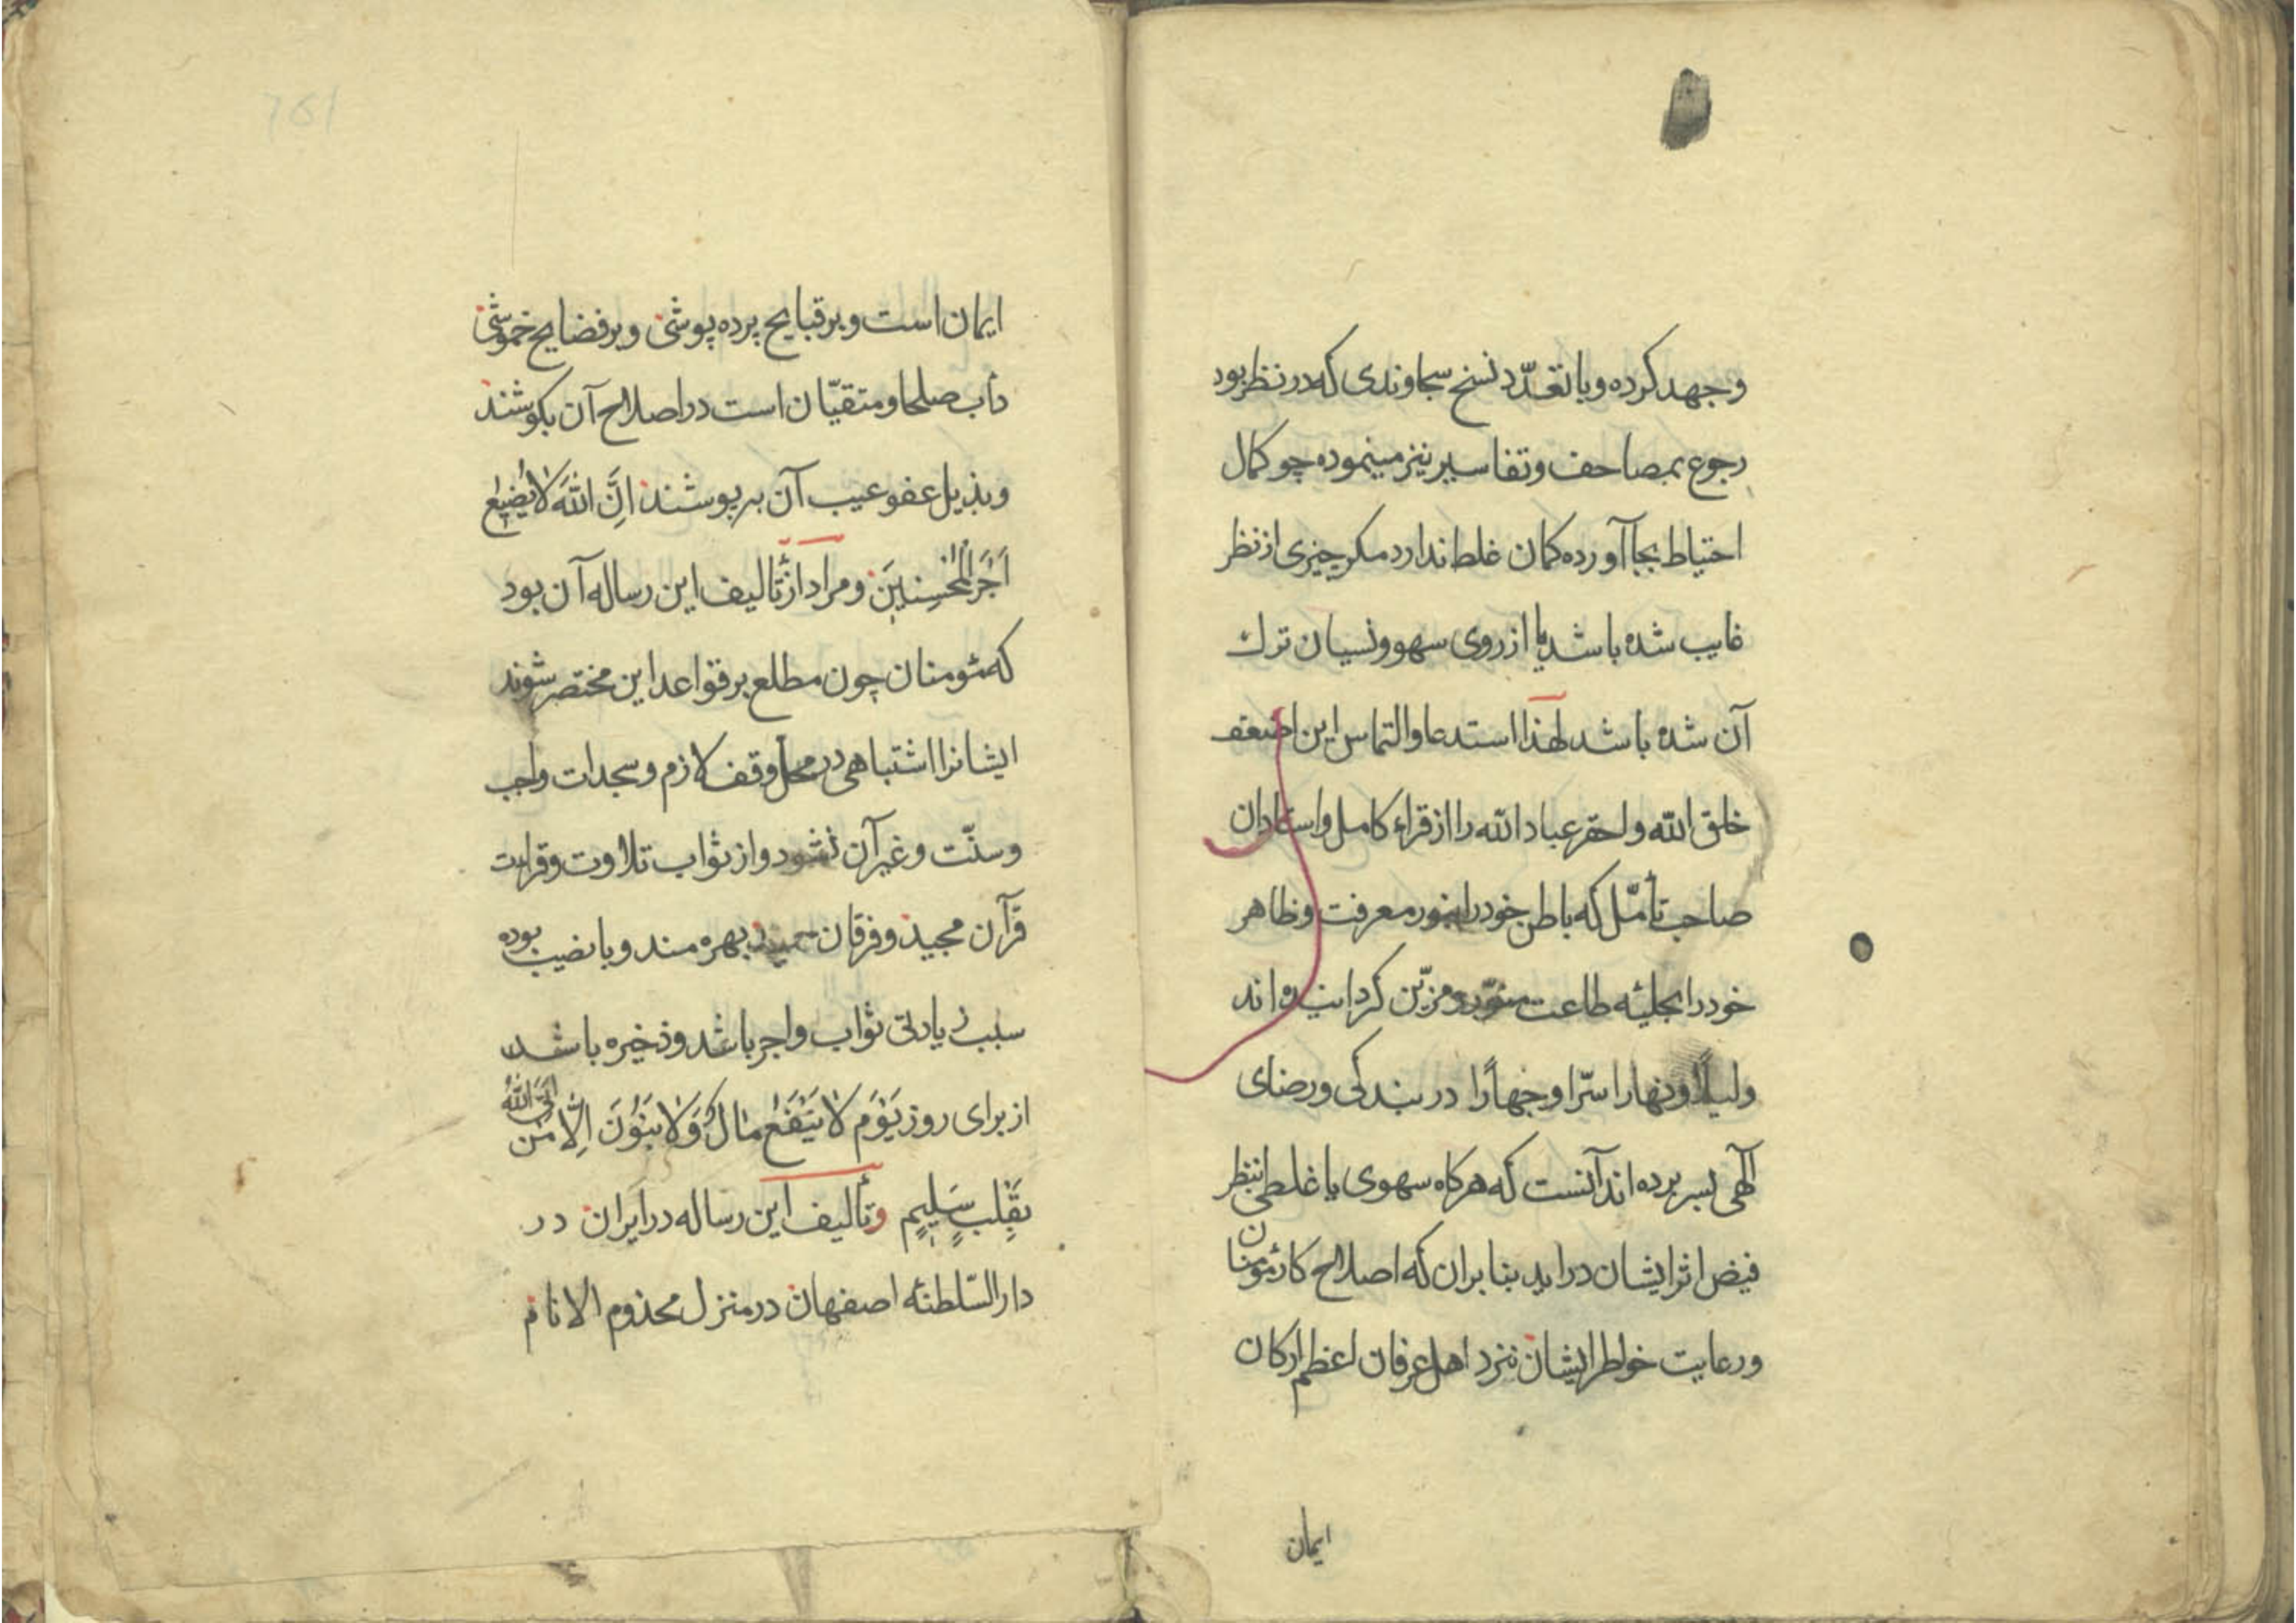 وجهد كرده وبا تعدّد نسخ سجاوندى كه در نظر بود
رجوع بمصاحف وتفاسير نيز مينموده چو كمال
احتياط بجا آورده كمان غلط ندارد مكر چيزى از نظر
غايب شده باشد يا از روى سهو ونسيان ترك
آن شده باشد لهذا استدعا والتماس اين اضعف
خلق الله واحقر عباد الله را از قراء كامل واستادان
صاحب تأمّل كه باطن خود را بنور معرفت وظاهر
خود را بحليهٔ طاعت منوّر ومزيّن كردانيده اند
وليلاً ونهارا سرّا وجهارًا در بندكى ورضاى
آلهى بسر برده اند آنست كه هركاه سهوى يا غلطى بنظر
فيض اثر ايشان درايد بنا بران كه اصلاح كار مؤمنان
ورعايت خواطر ايشان نزد اهل عرفان اعظم اركان
ايمان
ايمان است وبر قبايح پرده پوشى وبر فضايح خموشى
دأب صلحا ومتقيّان است در اصلاح آن بكوشند
وبذيل عفو عيب آن بپوشند اِنَّ اللّٰهَ لَا يُضِيْعُ
اَجْرَ الْمُحْسِنِيْنَ ومراد از تأليف اين رساله آن بود
كه مئومنان چون مطلع بر قواعد اين مختصر شوند
ايشانرا اشتباهى در محل وقف لازم وسجدات واجب
وسنّت وغير آن نشود واز ثواب تلاوت وقراءت
قرآن مجيد وفرقان حميد بهره مند وبا نصيب بوده
سبب زيادتى ثواب واجر باشد وذخيره باشد
از براى روز يَوْمَ لَا يَنْفَعُ مَالٌ وَلَا بَنُوْنَ اِلَّا مَنْ اَتَى اللّٰهَ
بِقَلْبٍ سَلِيْمٍ وتأليف اين رساله در ايران در
دار السّلطنهٔ اصفهان در منزل مخدوم الانام